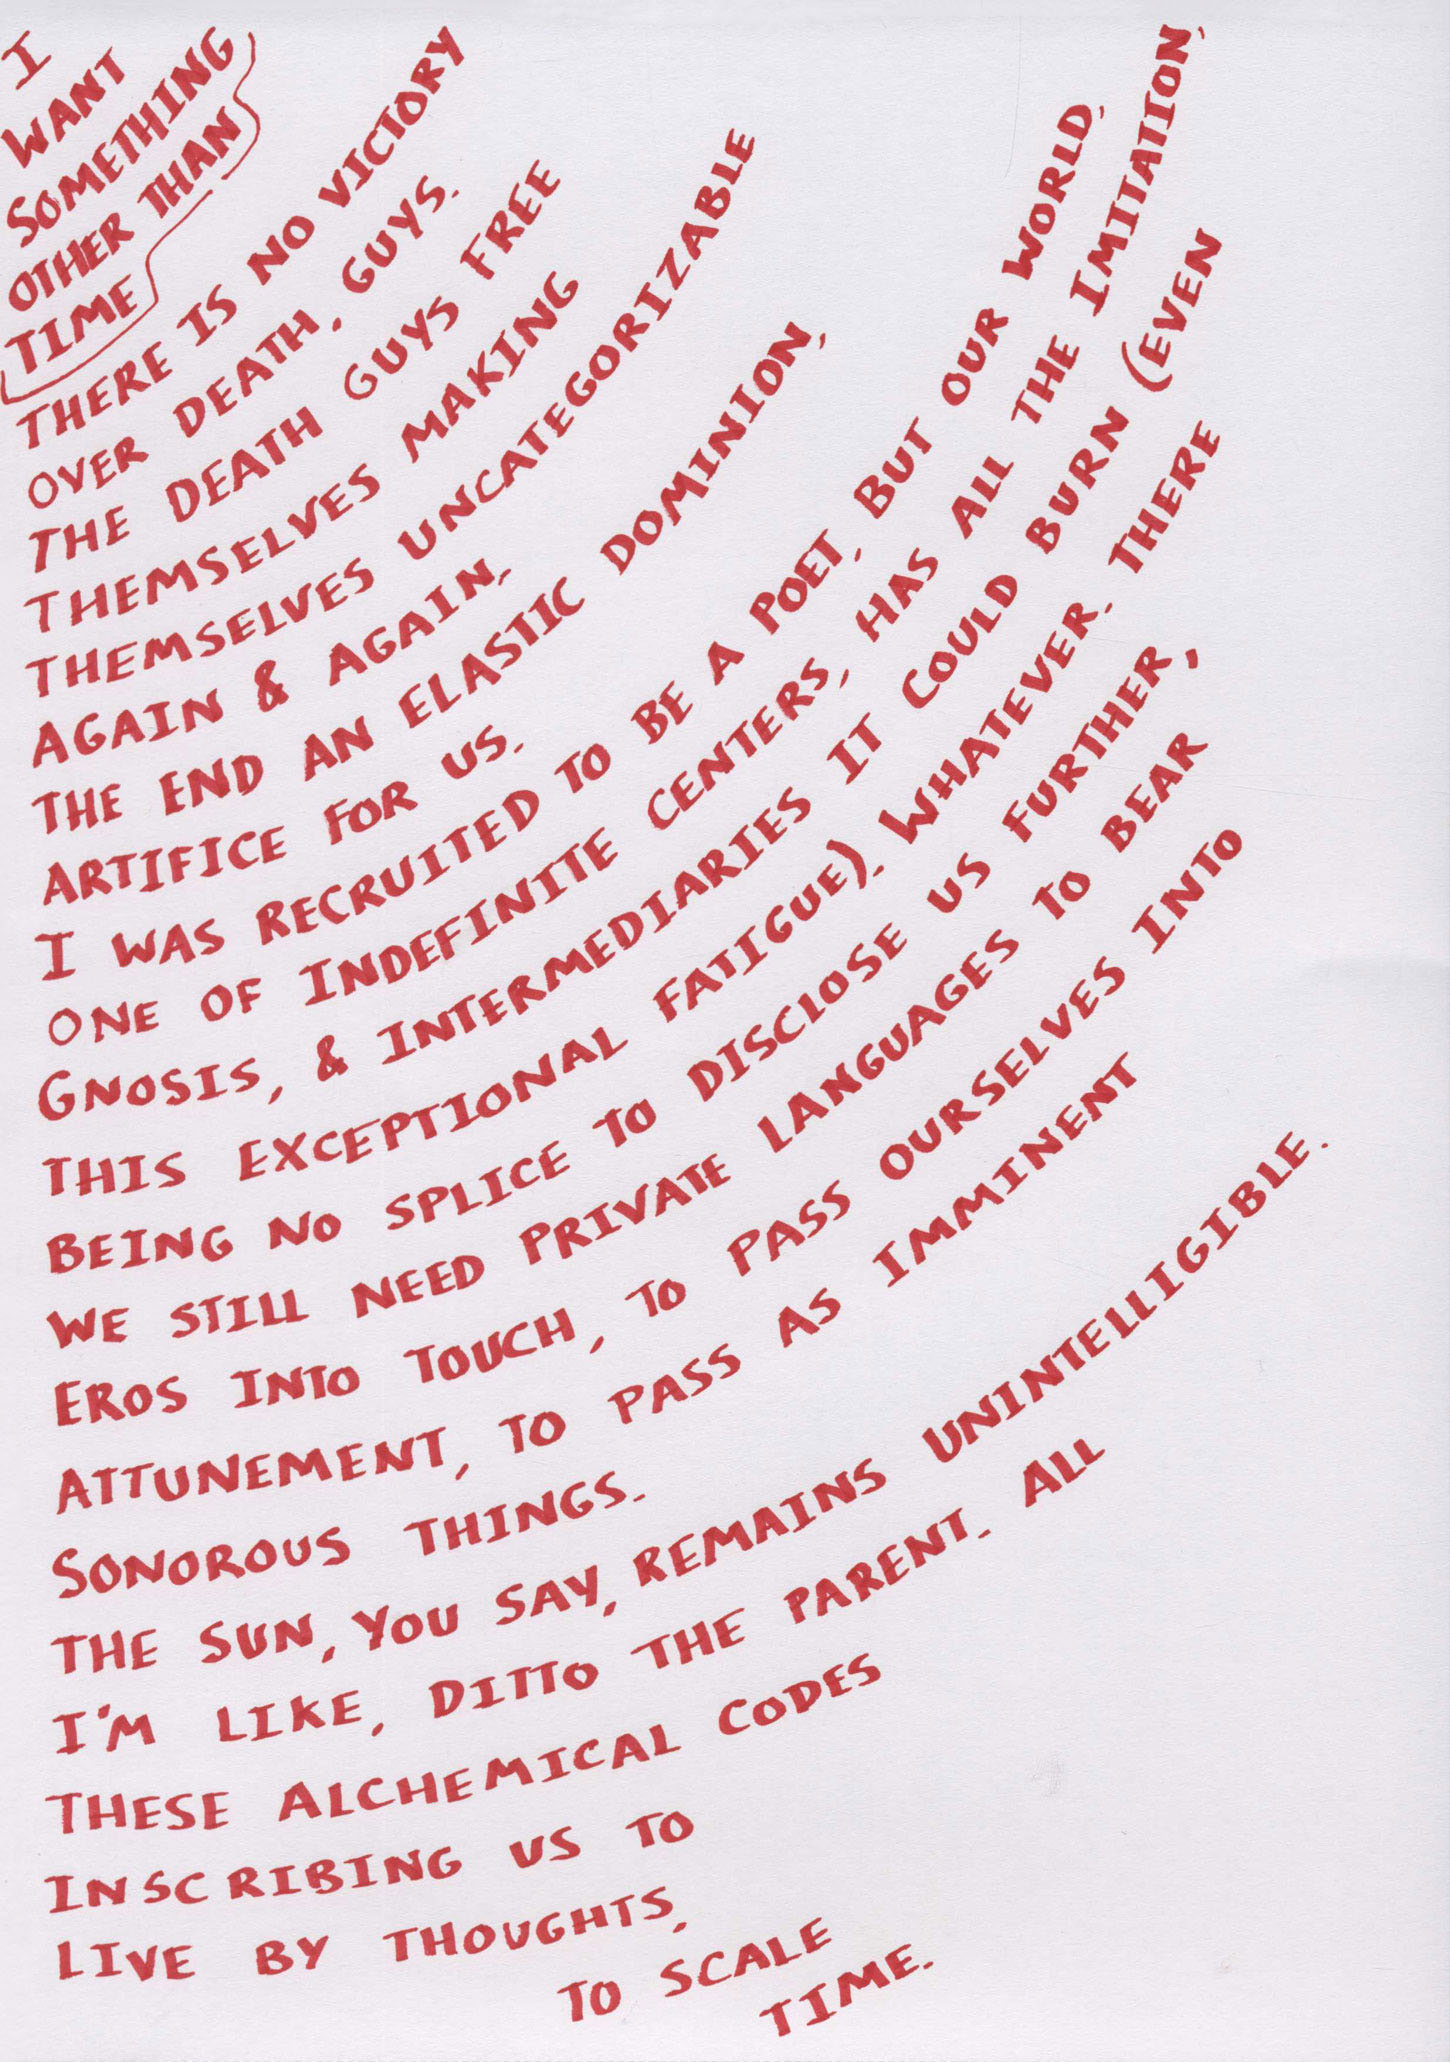 I
WANT
SOMETHING
OTHER THAN
TIME
THERE IS NO VICTORY
OVER DEATH, GUYS.
THE DEATH GUYS FREE
THEMSELVES MAKING
THEMSELVES UNCATEGORIZABLE
AGAIN & AGAIN,
THE END AN ELASTIC DOMINION,
ARTIFICE FOR US.
I WAS RECRUITED TO BE A POET, BUT OUR WORLD,
ONE OF INDEFINITE CENTERS, HAS ALL THE IMITATION,
GNOSIS, & INTERMEDIARIES IT COULD BURN (EVEN
THIS EXCEPTIONAL FATIGUE). WHATEVER. THERE
BEING NO SPLICE TO DISCLOSE US FURTHER,
WE STILL NEED PRIVATE LANGUAGES TO BEAR
EROS INTO TOUCH, TO PASS OURSELVES INTO
ATTUNEMENT, TO PASS AS IMMINENT
SONOROUS THINGS.
THE SUN, YOU SAY, REMAINS UNINTELLIGIBLE.
I'M LIKE, DITTO THE PARENT. ALL
THESE ALCHEMICAL CODES
INSCRIBING US TO
LIVE BY THOUGHTS,
TO SCALE
TIME.